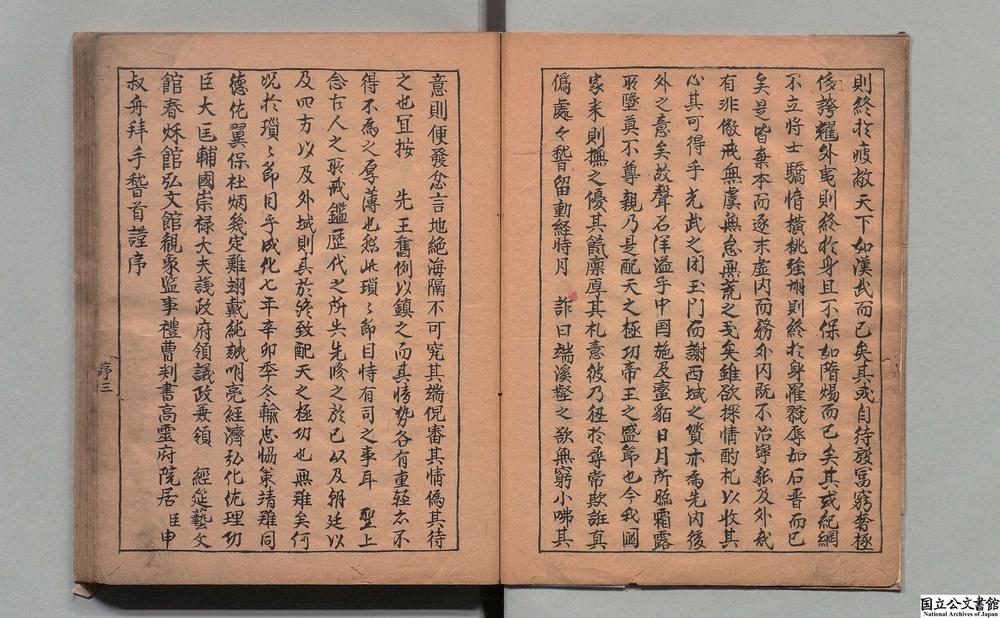 則終於疲敝天下如漢武而已矣其或自恃殷富窮奢極
侈誇耀外夷則終於身且不保如隋煬而已矣其或紀綱
不立將士驕惰橫挑強胡則終於身羅戮辱如石晋而已
矣是皆棄本而逐末虛內而務外內既不治寧能及外哉
有非儆戒無虞無怠無荒之義矣雖欲探情酌札以收其
心其可得乎光武之閉玉門而謝西域之質亦為先內後
外之意矣故聲名洋溢乎中国施及蛮貊日月所照霜露
所墜莫不尊親乃是配天之極功帝王之盛節也今我國
家来則撫之優其餼廪厚其札意彼乃狃於尋常欺誑真
僞處々稽留動經時月　詐曰端溪壑之欲無窮小咈其
意則便發忿言地絶海隔不可究其端倪審其情僞其待
之也宜按　先王舊例以鎮之而其情勢各有重軽亦不
得不為之厚薄也然此瑣々節目特有司之事耳　聖上
念古人之所戒鑑歷代之所失先修之於己以及朝廷以
及四方以及外域則其於終致配天之極功也無難矣何
况於瑣々節目乎成化七年辛卯季冬輸忠恊策靖難同
德佐翼保社炳幾定難翊戴純誠明亮經濟弘化佐理功
臣大匡輔國崇禄大夫議政府領議政兼領　經筵藝文
館春秋館弘文館観象监事禮曹判書高靈府院君　臣申
叔舟拜手稽首謹序
序三
国立公文書館
National Archives of Japan